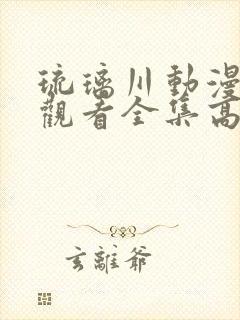 琉璃川動漫
觀看全集高
玄離爺